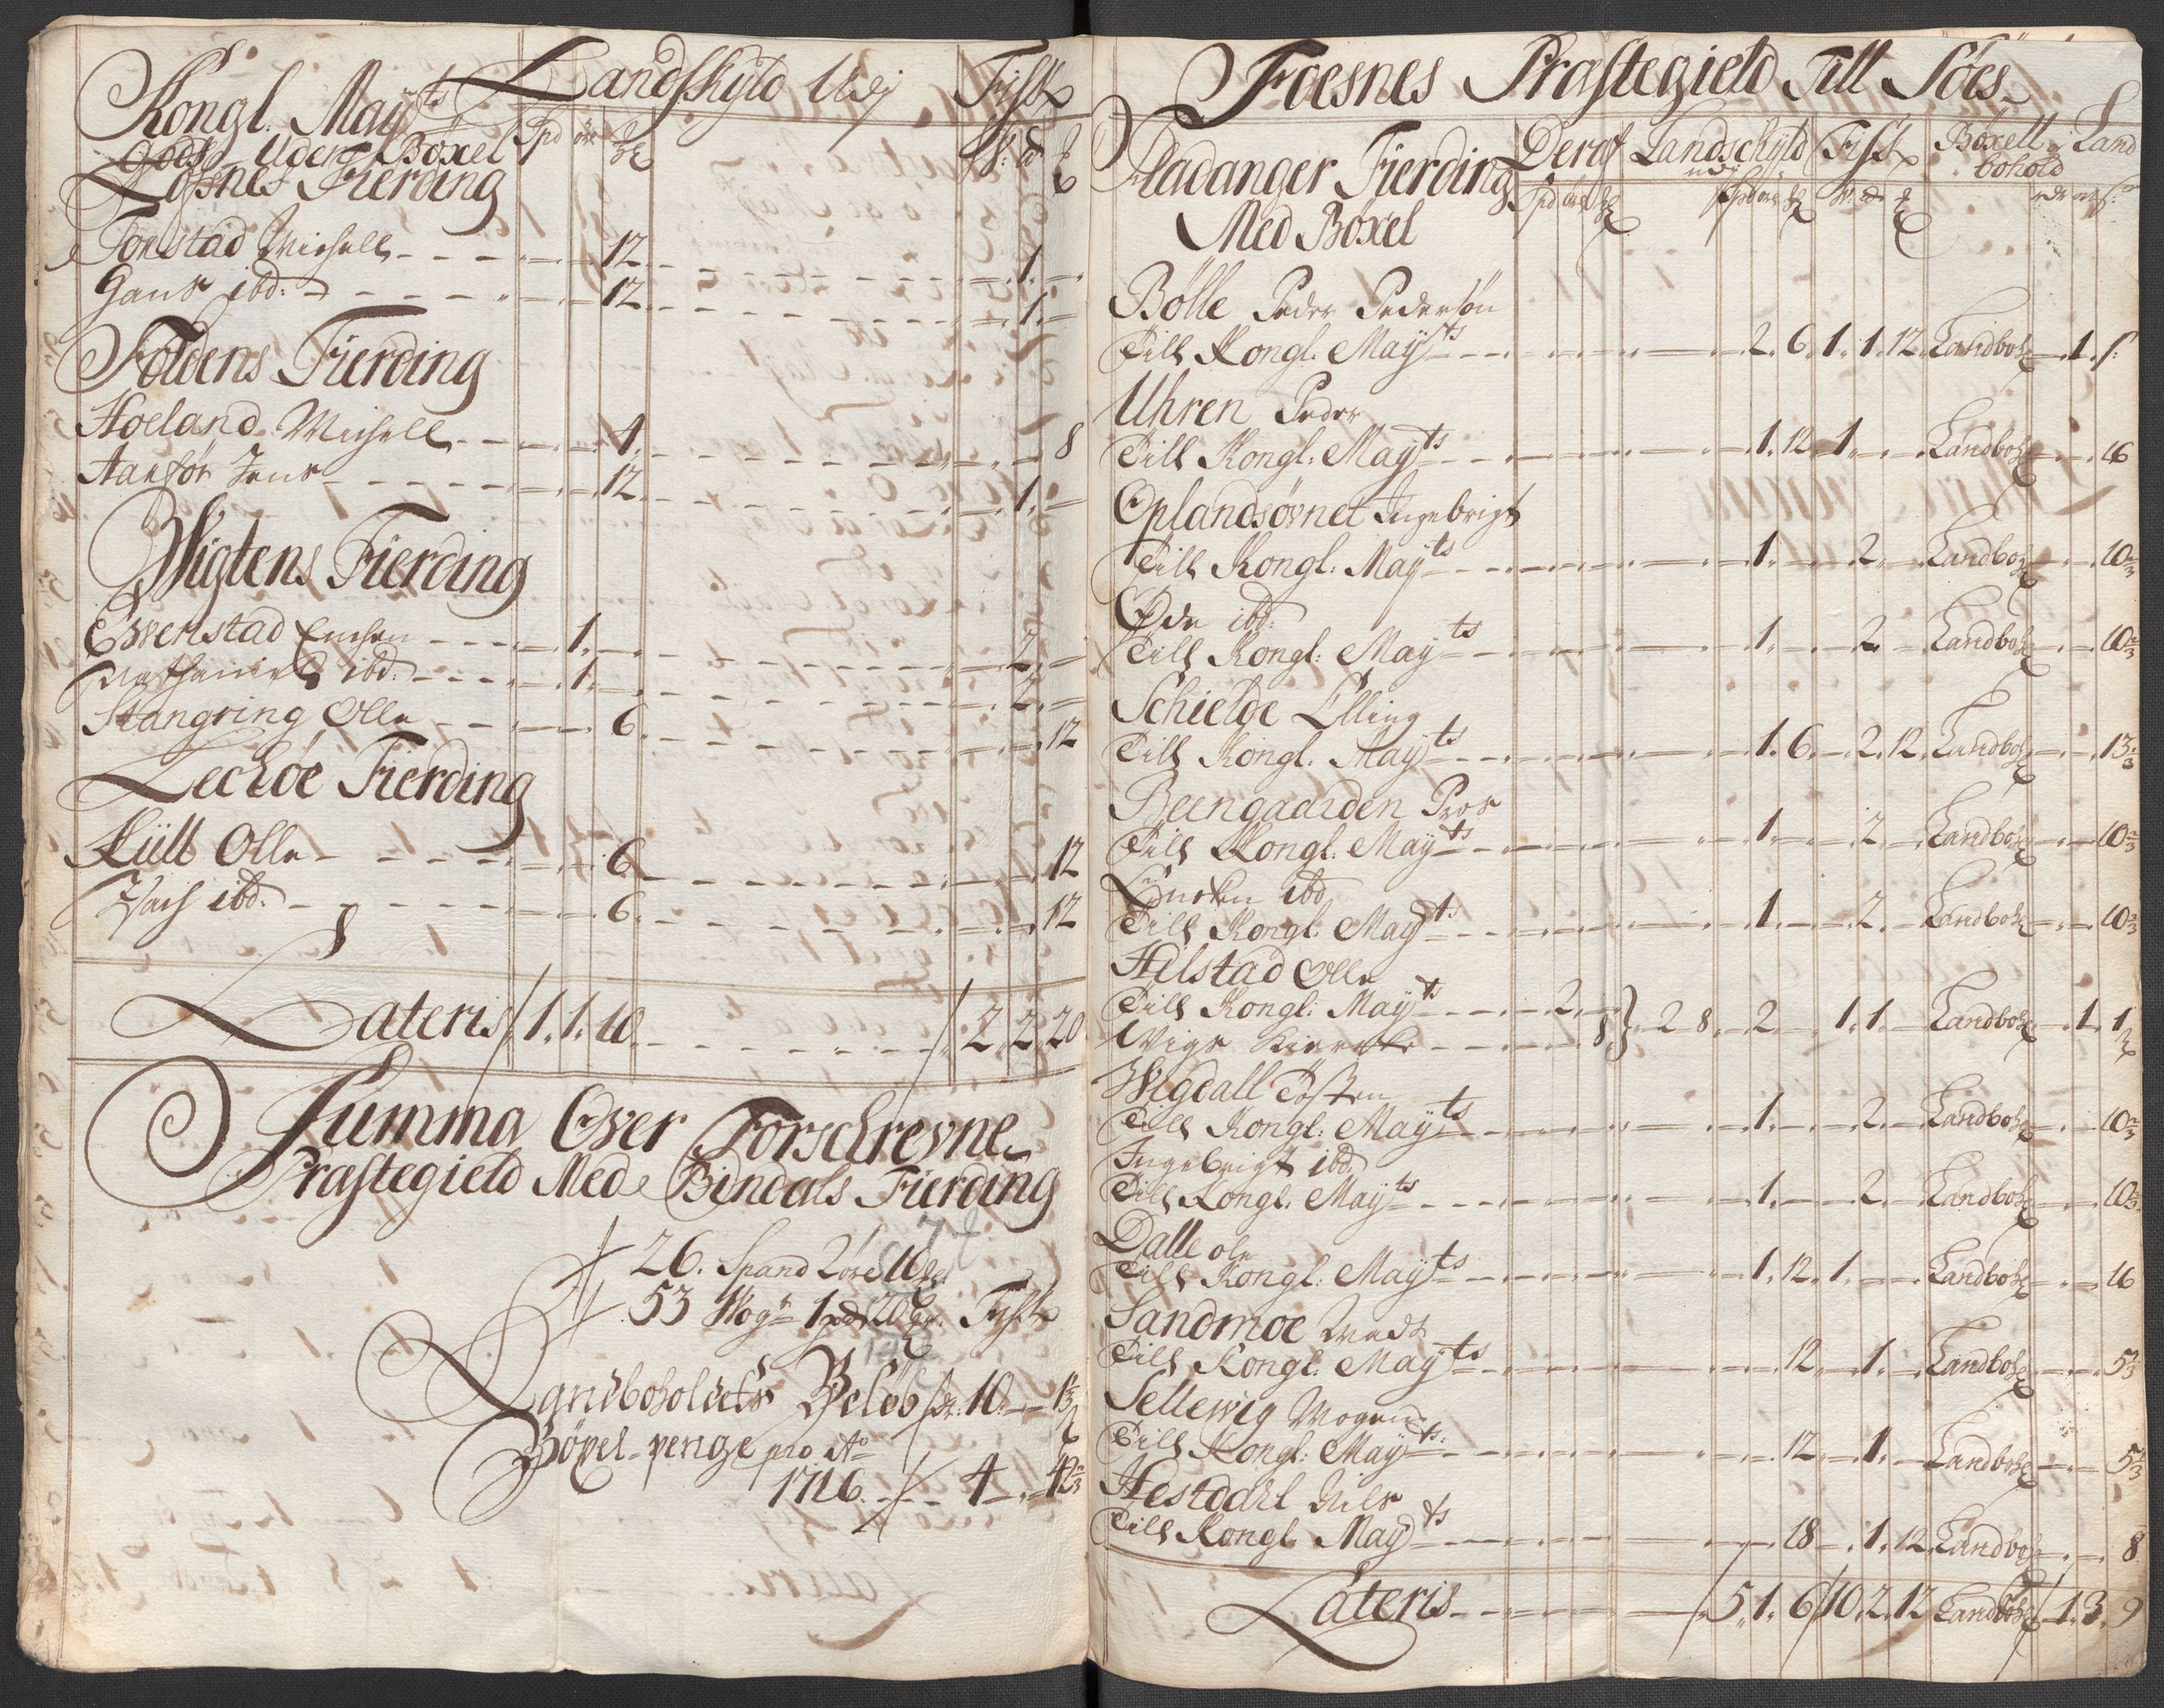 Kongl. Mayts Landschyld Udj Fisk
Gods Uden Böxel Spd øre
Fosnes Fierding
Torstad Michell 12 1
Hans ibd: 12 1
Foldens Fierding
Hoeland Michell 4 8
Aarför Jens 12 1
Wigtens Fierding
Evenstad 1 2
Nathaniel ibd. 1 2
Stangring Olle 6 12
Leckøe Fierding
Küll Olle 6 12
Isach ibd. 6 12
Lateris 1. 1. 10 2 2 20
Summa Over Forschrevne
Præstegield Med Bindals Fierding
26. Spand 2 öre 10
53 Wog 1 pd 20 Fisk
Landboholdets Beløb 10 1
Böxel-penge pro Ao
1716. 4 42 2/3
Foesnes Præstegield Till Söes
Fladanger Fierding Deraf Landschyld Fisk Böxell Land
udj bohold
Med Böxel
Bölle Peder Pedersön
Till Kongl. Mayts 2. 6. 1. 1. 12 Landboh 1. 8
Uhren Peder
Till Kongl: Mayts 1. 12. 1 Landboh 16
Oplandsøvnet Ingebrigt
Till Kongl: Mayts 1. 2 Landboh 10 2/3
Ode ibd:
Till Kongl: Mayts 1. 2 Landboh 10 2/3
Schielde Elling
Till Kongl. Mayts 1. 6 2. 12. Landboh 13 1/3
Beengaarden
Till Kongl. Mayts 1. 2 Landboh 10 2/3
ibd
Till Kongl. Mayts 1 2 Landboh 10 2/3
Hilstad Olle
Till Kongl: Mayts 2. 2 8 2 1. 1. Landboh 1. 1
Kiercke 8
Wigdall Tosten
Till Kongl: Mayts 1. 2. Landboh 10 2/3
Ingebrigt ibd.
Till Kongl. Mayts 1. 2. Landboh 10 2/3
Dalle ole
Till Kongl: Mayts 1. 12. 1. Landboh 16
Sandmoe
Till Kongl. Mayts 12 1. Landboh 5 1/3
Sellewig Mogens
Till Kongl: Mayts: 12 1. Landboh 5 1/3
Hestdahl Nils
Till Kongl. Mayts 18 1. 12. Landboh 8
Lateris 5. 1. 6 10. 2. 12 Landboh 1. 3. 9